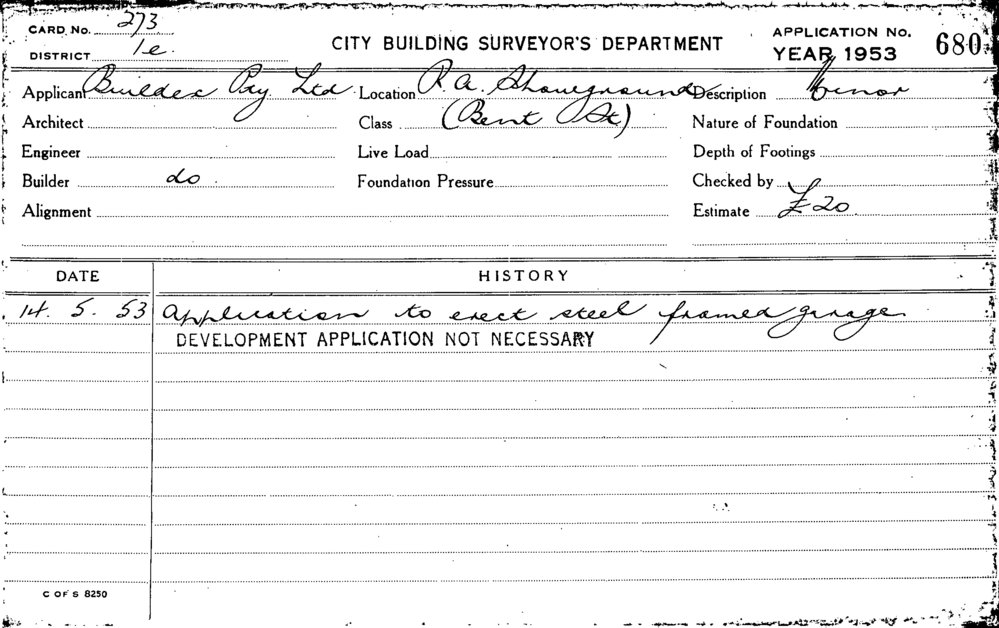 CARD No. 273
DISTRICT 1e.
CITY BUILDING SURVEYOR'S DEPARTMENT
APPLICATION No.
YEAR 1953
680
Applicant Buildex Pty Ltd Location R.A. Showground Description Minor
Architect Class (Bent St) Nature of Foundation
Engineer Live Load Depth of Footings
Builder do. Foundation Pressure Checked by
Alignment Estimate £20
DATE HISTORY
14. 5. 53 Application to erect steel framed garage
DEVELOPMENT APPLICATION NOT NECESSARY
C OF S 8250